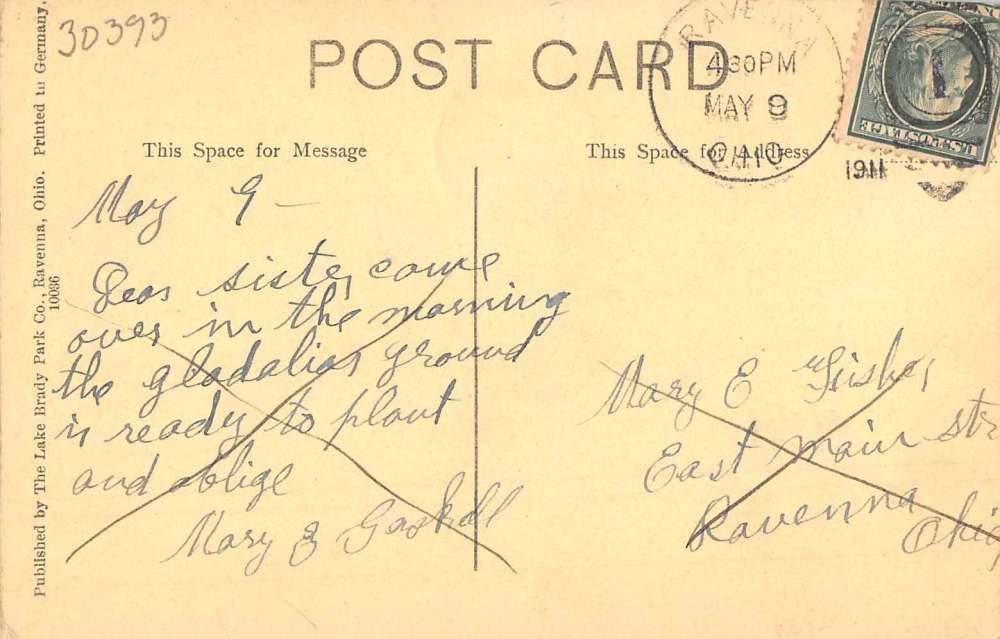 30393
POST CARD
RAVENNA
430PM
MAY 9
OHIO
1911
U.S. POSTAGE
This Space for Message
This Space for Address
Published by The Lake Brady Park Co., Ravenna, Ohio. Printed in Germany.
10036
May 9 —
Dear sister come
over in the morning
the gladalias ground
is ready to plant
and oblige
Mary E Gaskell
Mary E Fisher
East main str
Ravenna
Ohio